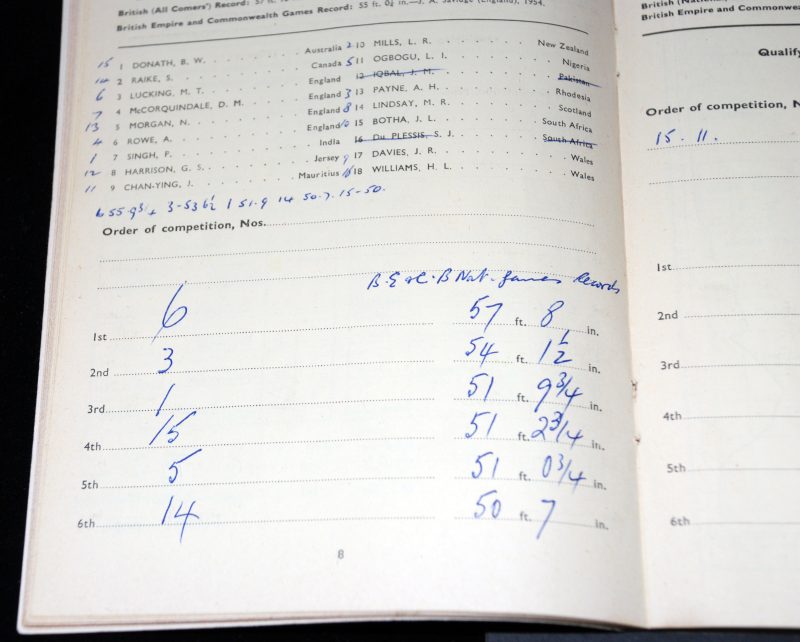 British (All Comers') Record: 57 ft.
British Empire and Commonwealth Games Record: 55 ft. 0¼ in.—J. A. Savidge (England), 1954.
15 1 DONATH, B. W. Australia
14 2 RAIKE, S. Canada
6 3 LUCKING, M. T. England
7 4 McCORQUINDALE, D. M. England
13 5 MORGAN, N. England
4 6 ROWE, A. England
1 7 SINGH, P. India
12 8 HARRISON, G. S. Jersey
11 9 CHAN-YING, J. Mauritius
2 10 MILLS, L. R. New Zealand
5 11 OGBOGU, L. I. Nigeria
12 IQBAL, J. M. Pakistan
3 13 PAYNE, A. H. Rhodesia
8 14 LINDSAY, M. R. Scotland
10 15 BOTHA, J. L. South Africa
16 Du PLESSIS, S. J. South Africa
9 17 DAVIES, J. R. Wales
18 WILLIAMS, H. L. Wales
6 55.9¾ 3-53 6½ 1 51.9 14 50-7. 15-50.
Order of competition, Nos.
B.E & C. B Nat. Games Records
1st 6 57 ft. 8 in.
2nd 3 54 ft. 1½ in.
3rd 1 51 ft. 9¾ in.
4th 15 51 ft. 2¾ in.
5th 5 51 ft. 0¾ in.
6th 14 50 ft. 7 in.
8
British (Nation
British Empire and Commonwea
Qualify
Order of competition, N
15. 11.
1st
2nd
3rd
4th
5th
6th